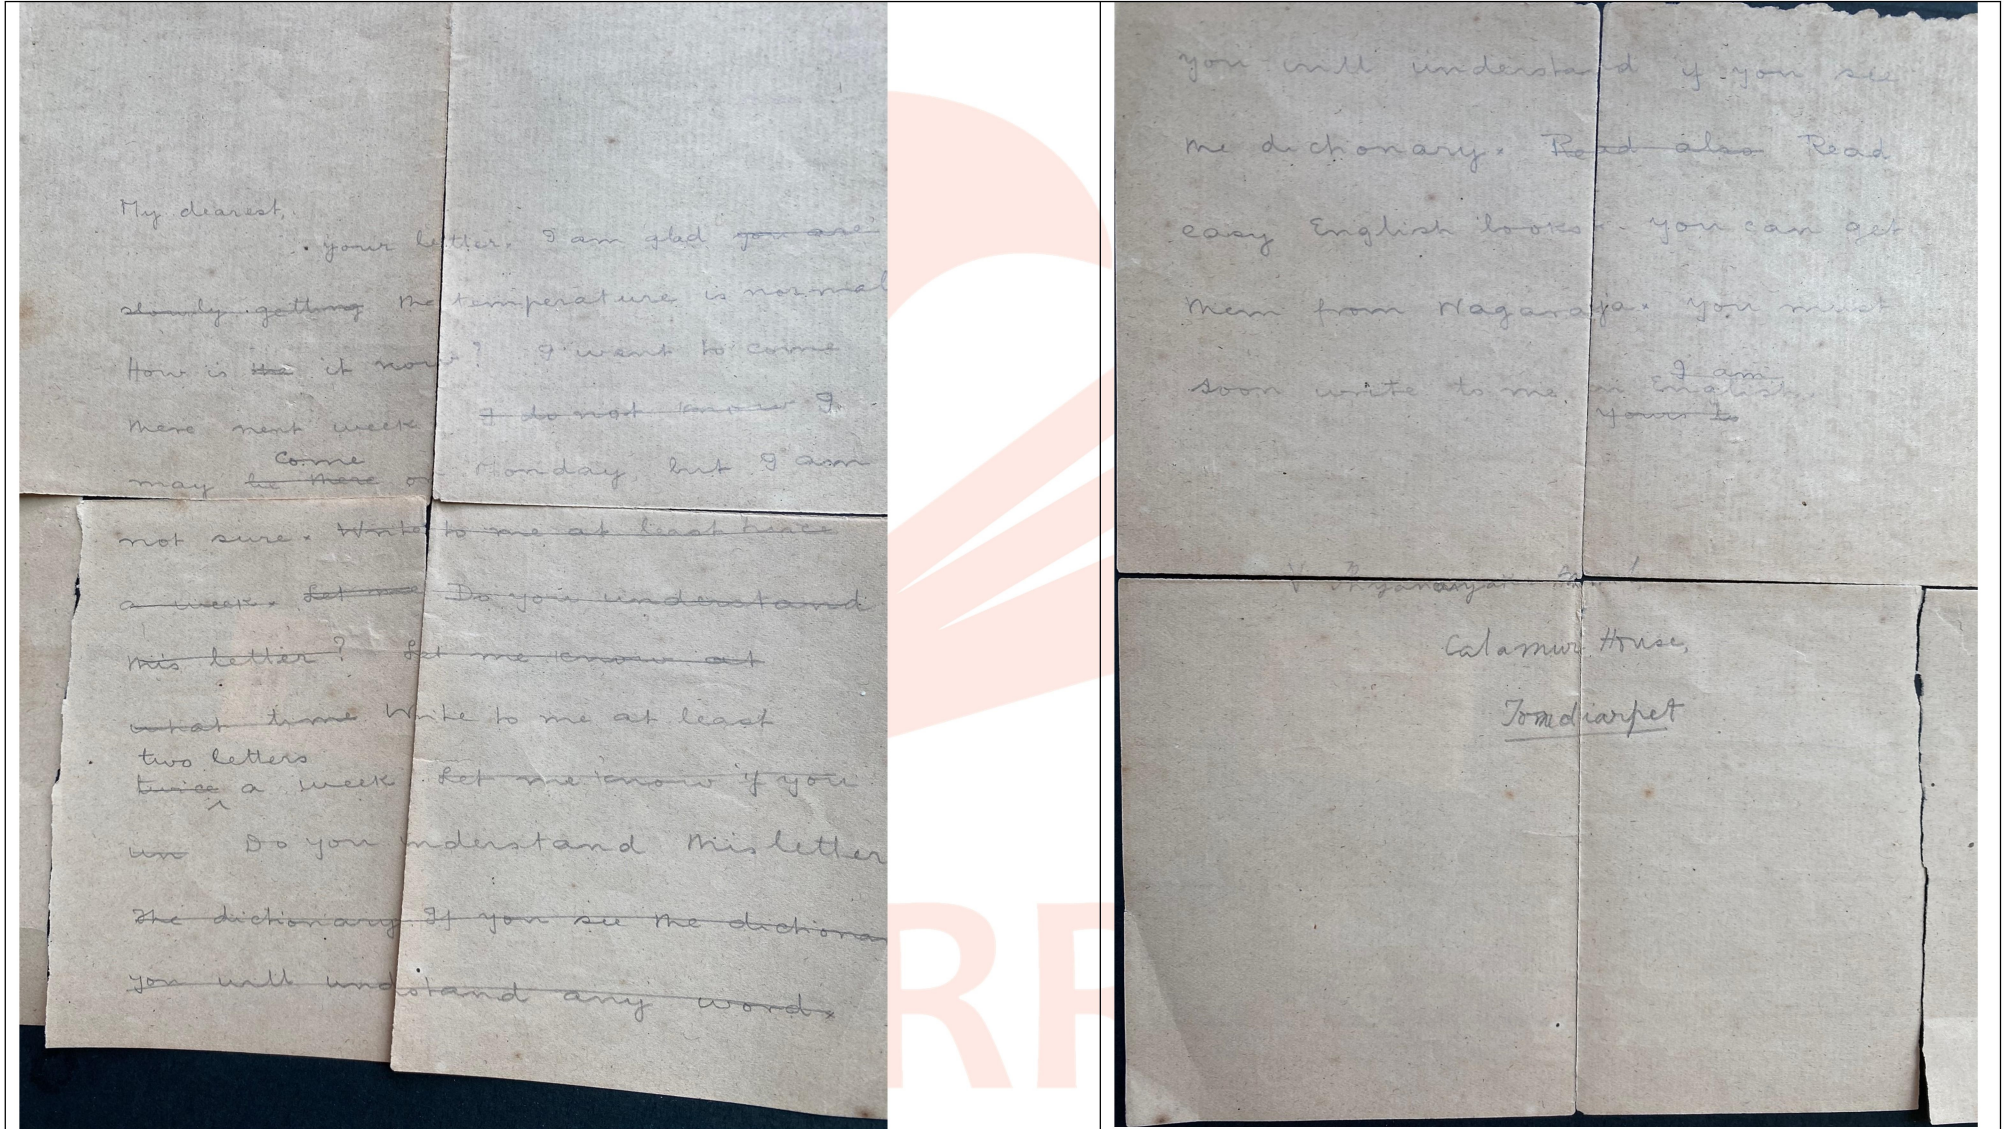 My dearest,
your letter. I am glad you are
slowly getting the temperature is normal
How is the it now? I want to come
there next week I do not know I
come
may be there on Monday, but I am
not sure. Write to me at least twice
a week. Let me Do you understand
this letter? Let me know at
what time Write to me at least
two letters
twice a week. Let me know if you
un Do you understand this letter
The dictionary If you see the dictiona
you will undstand any word.
you will understand if you see
the dictionary. Read also Read
easy English books. You can get
them from Nagaraja. You must
I am
soon write to me in English.
Yours to
Calamur House,
Tondiarpet
RR